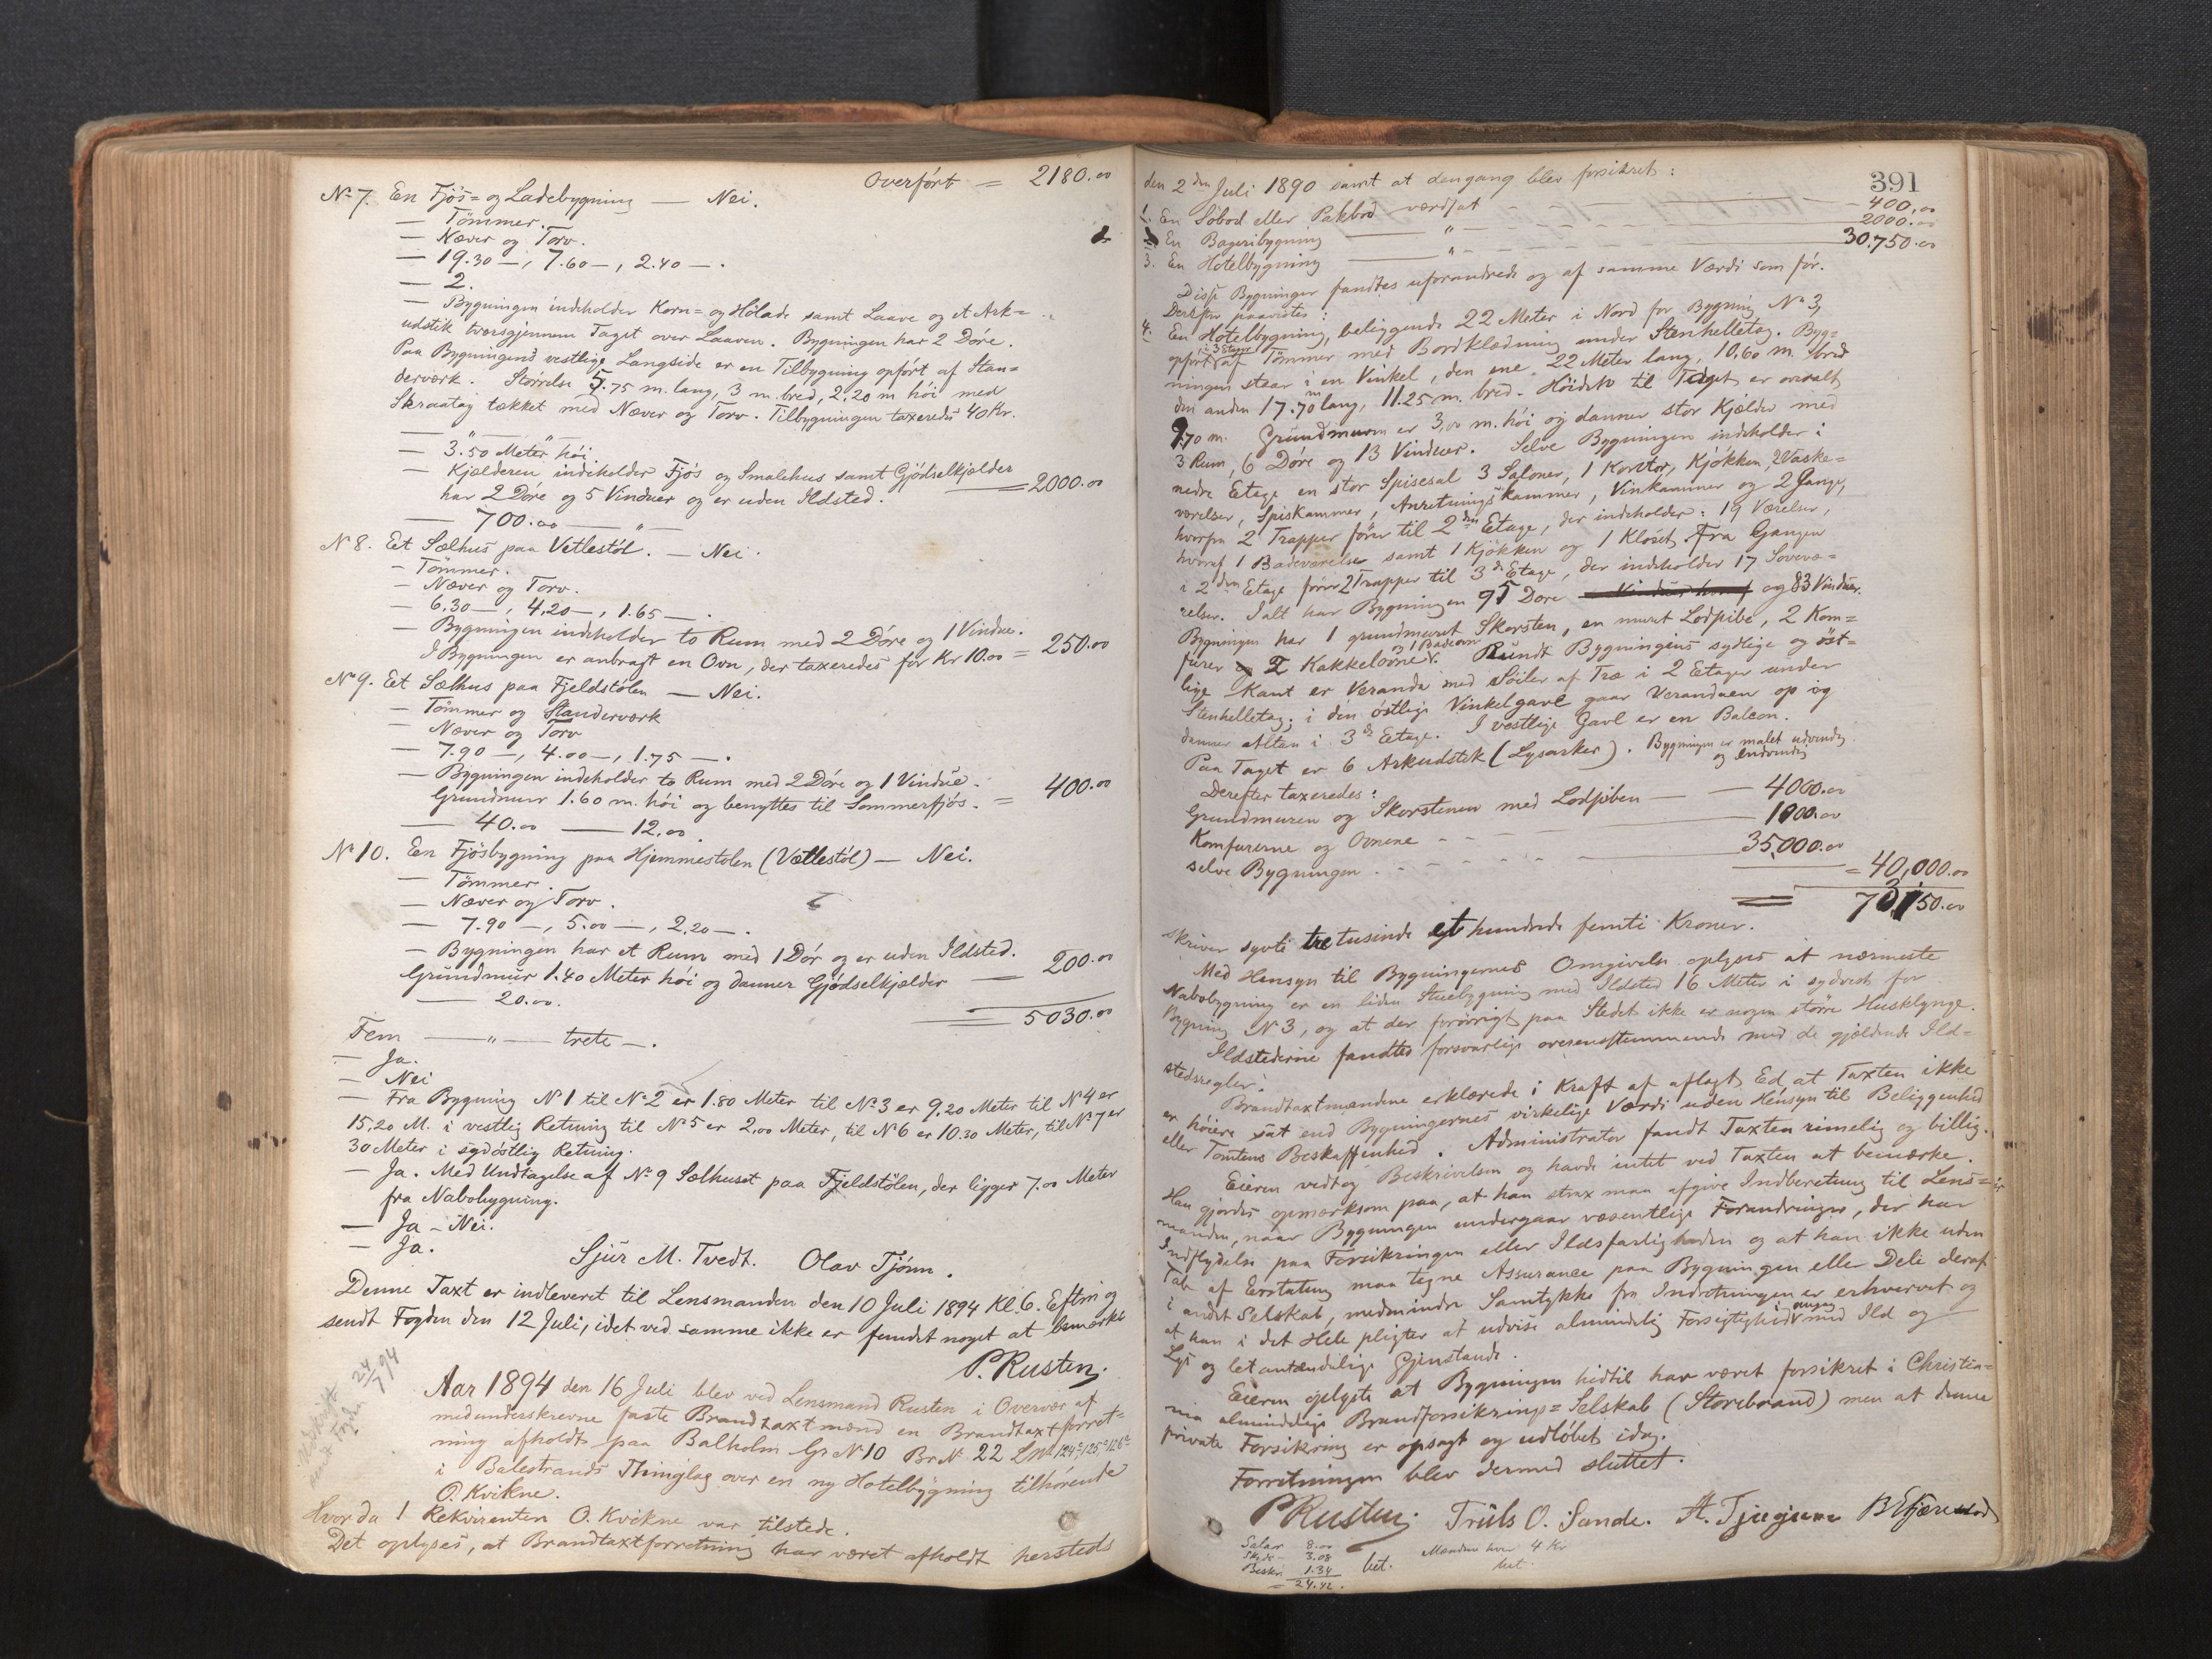 Overført = 2180.00
No 7. En Fjös= og Ladebygning — Nei.
— Tömmer.
— Næver og Torv.
— 19.30 —, 7.60 —, 2.40 —.
— 2.
— Bygningen indeholder Korn= og Hölade samt Laave og et Ark=
udstik tværsgjennem Taget over Laaven. Bygningen har 2 Döre.
Paa Bygningens vestlige Langside er en Tilbygning opfört af Stan=
derværk. Störrelse 5.75 m. lang, 3 m. bred, 2,20 m höi med
Skraatag tækket med Næver og Torv. Tilbygningen taxeredes 40 Kr.
— " — " —
— 3.50 Meter höi.
— Kjælderen indeholder Fjös og Smalehus samt Gjödselkjælder
har 2 Döre og 5 Vinduer og er uden Ildsted. = 2000.00
— 700.00 — " —
No 8. Et Sælhus paa Vetlestöl. — Nei.
— Tömmer.
— Næver og Torv.
— 6.30 —, 4.20 —, 1.65 —.
— Bygningen indeholder to Rum med 2 Döre og 1 Vindue.
I Bygningen er anbragt en Ovn, der taxeredes for Kr 10.00 = 250.00
No 9. Et Sælhus paa Fjeldstölen — Nei.
— Tömmer og Standerværk
— Næver og Torv
— 7.90 —, 4.00 —, 1.75 —.
— Bygningen indeholder to Rum med 2 Döre og 1 Vindue.
Grundmur 1.60 m. höi og benyttes til Sommerfjös. = 400.00
— 40.00 — 12.00
No 10. En Fjösbygning paa Hjemmestölen (Vætlestöl) — Nei.
— Tömmer.
— Næver og Torv.
— 7.90 —, 5.00 —, 2.20 —.
— Bygningen har et Rum med 1 Dör og er uden Ildsted.
Grundmur 1.40 Meter höi og danner Gjödselkjælder — 200.00
— 20.00.
5030.00
Fem — " — trete —.
— Ja.
— Nei
— Fra Bygning No 1 til No 2 er 1.80 Meter til No 3 er 9.20 Meter til No 4 er
15.20 M. i vestlig Retning til No 5 er 2.00 Meter, til No 6 er 10.30 Meter, til No 7 er
30 Meter i sydöstlig Retning.
— Ja. Med Undtagelse af No 9 Sælhuset paa Fjeldstölen, der ligger 7.00 Meter
fra Nabobygning.
— Ja — Nei.
— Ja.
Sjur M. Tvedt. Olav Tjönn.
Denne Taxt er indleveret til Lensmanden den 10 Juli 1894 Kl. 6. Eftm og
sendt Fogden den 12 Juli, idet ved samme ikke er fundet noget at bemærke
P. Rusten.
Udskrift sendt Fogden 24/7 94
Aar 1894 den 16 Juli blev ved Lensmand Rusten i Overvær af
medunderskrevne faste Brandtaxtmænd en Brandtaxtforret=
ning afholdt paa Balholm Gr No 10 Br No 22 LNo 124c, 125c, 126c
i Balestrands Thinglag over en ny Hotelbygning tilhörende
O. Kvikne.
Hvor da 1 Rekvirenten O. Kvikne var tilstede.
Det oplyses, at Brandtaxtforretning har været afholdt hersteds
391
den 2den Juli 1890 samt at dengang blev forsikret:
1. En Söbod eller Pakbod værdsat — 400,00
2. En Bageribygning — " — 2000.00
3. En Hotelbygning — " — 30.750.00
Disse Bygninger fandtes uforandrede og af samme Værdi som för.
Derefter paavistes:
4. En Hotelbygning, beliggende 22 Meter i Nord for Bygning No 3,
opfört i 3 Etager af Tömmer med Bordklædning under Stenhelletag. Byg=
ningen staar i en Vinkel, den ene 22 Meter lang, 10.60 m. bred
den anden 17.70 m lang, 11.25 m. bred. Höiden til Taget er overalt
9.70 m. Grundmuren er 3,00 m. höi og danner stor Kjælder med
3 Rum, 6 Döre og 13 Vinduer. Selve Bygningen indeholder i
nedre Etage en stor Spisesal 3 Saloner, 1 Kontor, Kjökken, 2 Vaske=
værelser, Spiskammer, Anretningskammer, Vinkammer og 2 Gange,
hvorfra 2 Trapper förer til 2den Etage, der indeholder: 19 Værelser,
hvoraf 1 Badeværelse samt 1 Kjökken og 1 Klöset. Fra Gangen
i 2den Etage förer 2 Trapper til 3de Etage, der indeholder 17 Soveværelse=
relser. Ialt har Bygningen 95 Döre og 83 Vinduer.
Bygningen har 1 grundmuret Skorsten, en muret Lodpibe, 2 Kom=
furer 2 Kakkelovne og 1 Badeovn. Rundt Bygningens sydlige og öst=
lige Kant er Veranda med Söiler af Træ i 2 Etager under
Stenhelletag; i den östlige Vinkelgavl gaar Verandaen op og
danner Altan i 3de Etage. I vestlige Gavl er en Balcon.
Paa Taget er 6 Arkudstik (Lysarker). Bygningen er malet udvendig og indvendig
Derefter taxeredes:
Grundmuren og Skorstenen med Lodpiben — 4000.00
Komfurerne og Ovnene — 1000.00
selve Bygningen — 35,000.00
= 40,000.00
= 73,150.00
skriver sytti tre tusinde et hundrede femti Kroner.
Med Hensyn til Bygningernes Omgivelse oplyses at nærmeste
Nabobygning er en liden Stuebygning med Ildsted 16 Meter i sydvest for
Bygning No 3, og at der forövrigt paa Stedet ikke er nogen större Husklynge.
Ildstederne fandtes forsvarlige overensstemmende med de gjældende Ild=
stedsregler.
Brandtaxtmændene erklærede i Kraft af aflagt Ed, at Taxten ikke
er höiere sat end Bygningernes virkelige Værdi uden Hensyn til Beliggenhed
eller Tomtens Beskaffenhed. Administrator fandt Taxten rimelig og billig.
Eieren vedtog Beskrivelsen og havde intet ved Taxten at bemærke.
Han gjordes opmærksom paa, at han strax maa afgive Indberetning til Lens=
manden, naar Bygningen undergaar væsentlige Forandringer, der har
Indflydelse paa Forsikringen eller Ildsfarligheden og at han ikke uden
Tab af Erstatning maa tegne Assurance paa Bygningen eller Dele deraf
i andet Selskab, medmindre Samtykke fra Indretningen er erhvervet og
at han i det Hele pligter at udvise almindelig Forsigtighed i Omgang med Ild og
Lys og let antændelige Gjenstande.
Eieren oplyste at Bygningen hidtil har været forsikret i Christia=
nia almindelige Brandforsikrings=Selskab (Storebrand) men at denne
private Forsikring er opsagt og udlöbet idag.
Forretningen blev dermed sluttet.
P Rusten. Truls O. Sande. A. Tjugum B Fjærestad
Salær 8.00
Skyds — 3.08
Beskr. 1.34
= 24.42.
bet.
Mændene hver 4 Kr
bet.